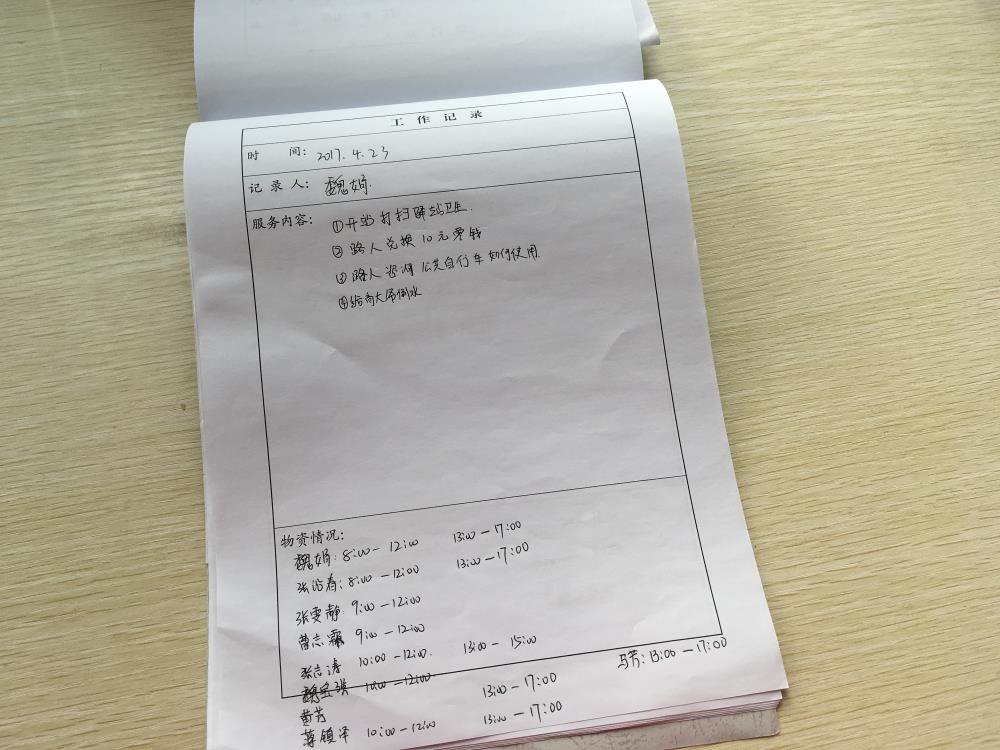 工作记录
时 间: 2017.4.23
记录人: 魏娟.
服务内容: ①开站打扫驿站卫生.
②路人兑换10元零钱
③路人咨询公共自行车如何使用.
④给商大爷倒水
物资情况:
魏娟: 8:00-12:00 13:00-17:00
张治春: 8:00-12:00 13:00-17:00
张雯静 9:00-12:00
曹志 9:00-12:00
张志涛 10:00-12:00. 13:00-15:00
10:00-12:00. 马芳:13:00-17:00
黄芳 13:00-17:00
蒋镇泽 10:00-12:00 13:00-17:00